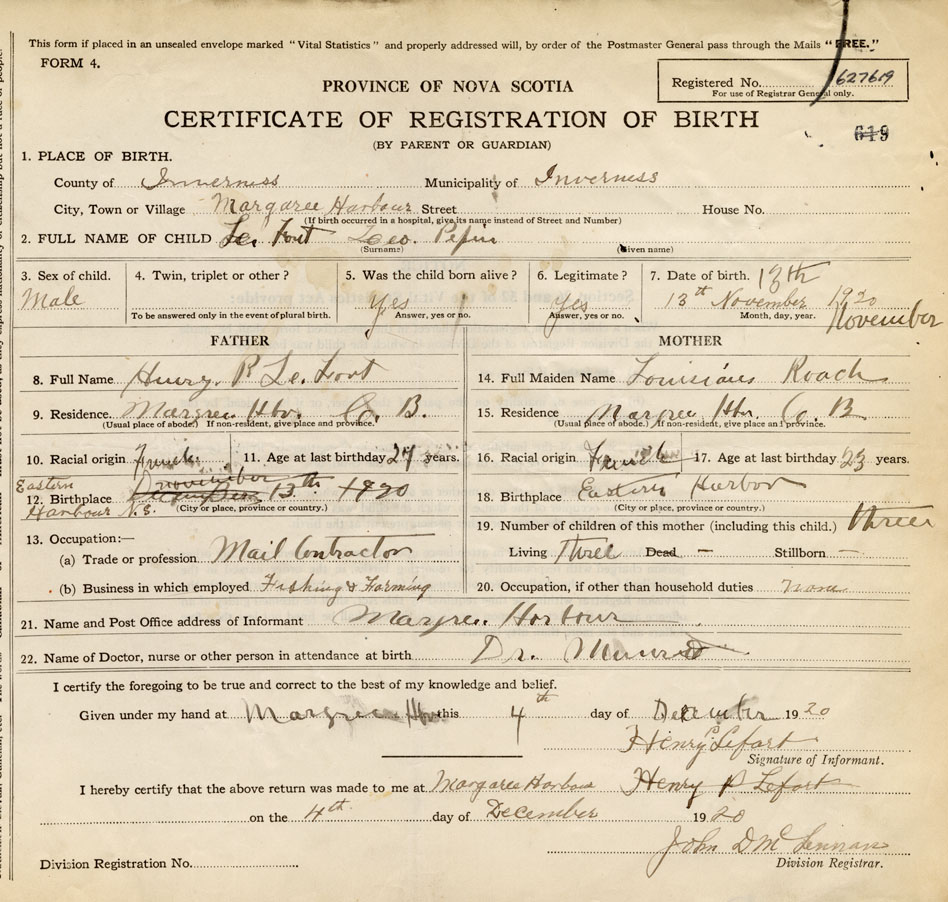 This form if placed in an unsealed envelope marked "Vital Statistics" and properly addressed will, by order of the Postmaster General pass through the Mails "FREE."
FORM 4.
PROVINCE OF NOVA SCOTIA
Registered No. 627619
For use of Registrar General only.
CERTIFICATE OF REGISTRATION OF BIRTH
619
(BY PARENT OR GUARDIAN)
1. PLACE OF BIRTH.
County of Inverness Municipality of Inverness
City, Town or Village Margaree Harbour Street House No.
(If birth occurred in a hospital, give its name instead of Street and Number)
2. FULL NAME OF CHILD Le. Fort Leo. Pepin
(Surname) (Given name)
3. Sex of child. 4. Twin, triplet or other? 5. Was the child born alive? 6. Legitimate? 7. Date of birth. 13th
Male Yes Yes 13th November 1920
To be answered only in the event of plural birth. Answer, yes or no. Answer, yes or no. Month, day, year. November
FATHER MOTHER
8. Full Name Henry. P Le. Fort 14. Full Maiden Name Roach
9. Residence. Margree Hbr. Co. B. 15. Residence Margree Hbr. Co. B
(Usual place of abode.) If non-resident, give place and province. (Usual place of abode.) If non-resident, give place and province.
10. Racial origin French 11. Age at last birthday 27 years. 16. Racial origin French 17. Age at last birthday 23 years.
Eastern november
12. Birthplace 13th 1920 18. Birthplace Eastern Harbor
Harbour N.S. (City or place, province or country.) (City or place, province or country.)
13. Occupation:— 19. Number of children of this mother (including this child.) three
(a) Trade or profession Mail Contractor Living Three Dead — Stillborn —
(b) Business in which employed Fishing & Farming 20. Occupation, if other than household duties none
21. Name and Post Office address of Informant Margree. Harbour
22. Name of Doctor, nurse or other person in attendance at birth Dr. Munro
I certify the foregoing to be true and correct to the best of my knowledge and belief.
Given under my hand at Margree Hbr this 4th day of December 1920
Henry P. Lefort
Signature of Informant.
I hereby certify that the above return was made to me at Margaree Harbour Henry P Lefort
on the 4th day of December 1920
John D McLennan
Division Registration No. Division Registrar.